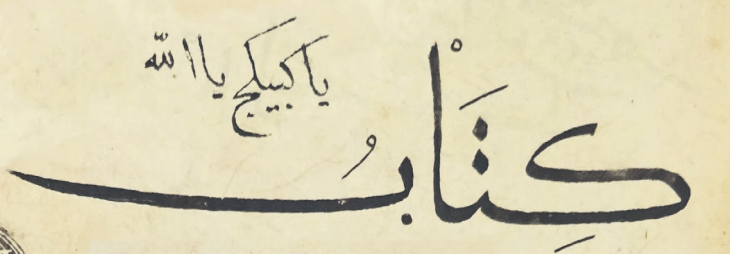 يا كبيكج يا الله
كِتَابُ